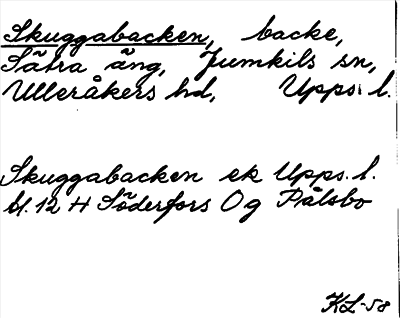 Skuggabacken, backe,
Sätra äng, Jumkils sn,
Ulleråkers hd, Upps. l.
Skuggabacken ek Upps. l.
bl. 12 H Söderfors Og Pålsbo
KL-58